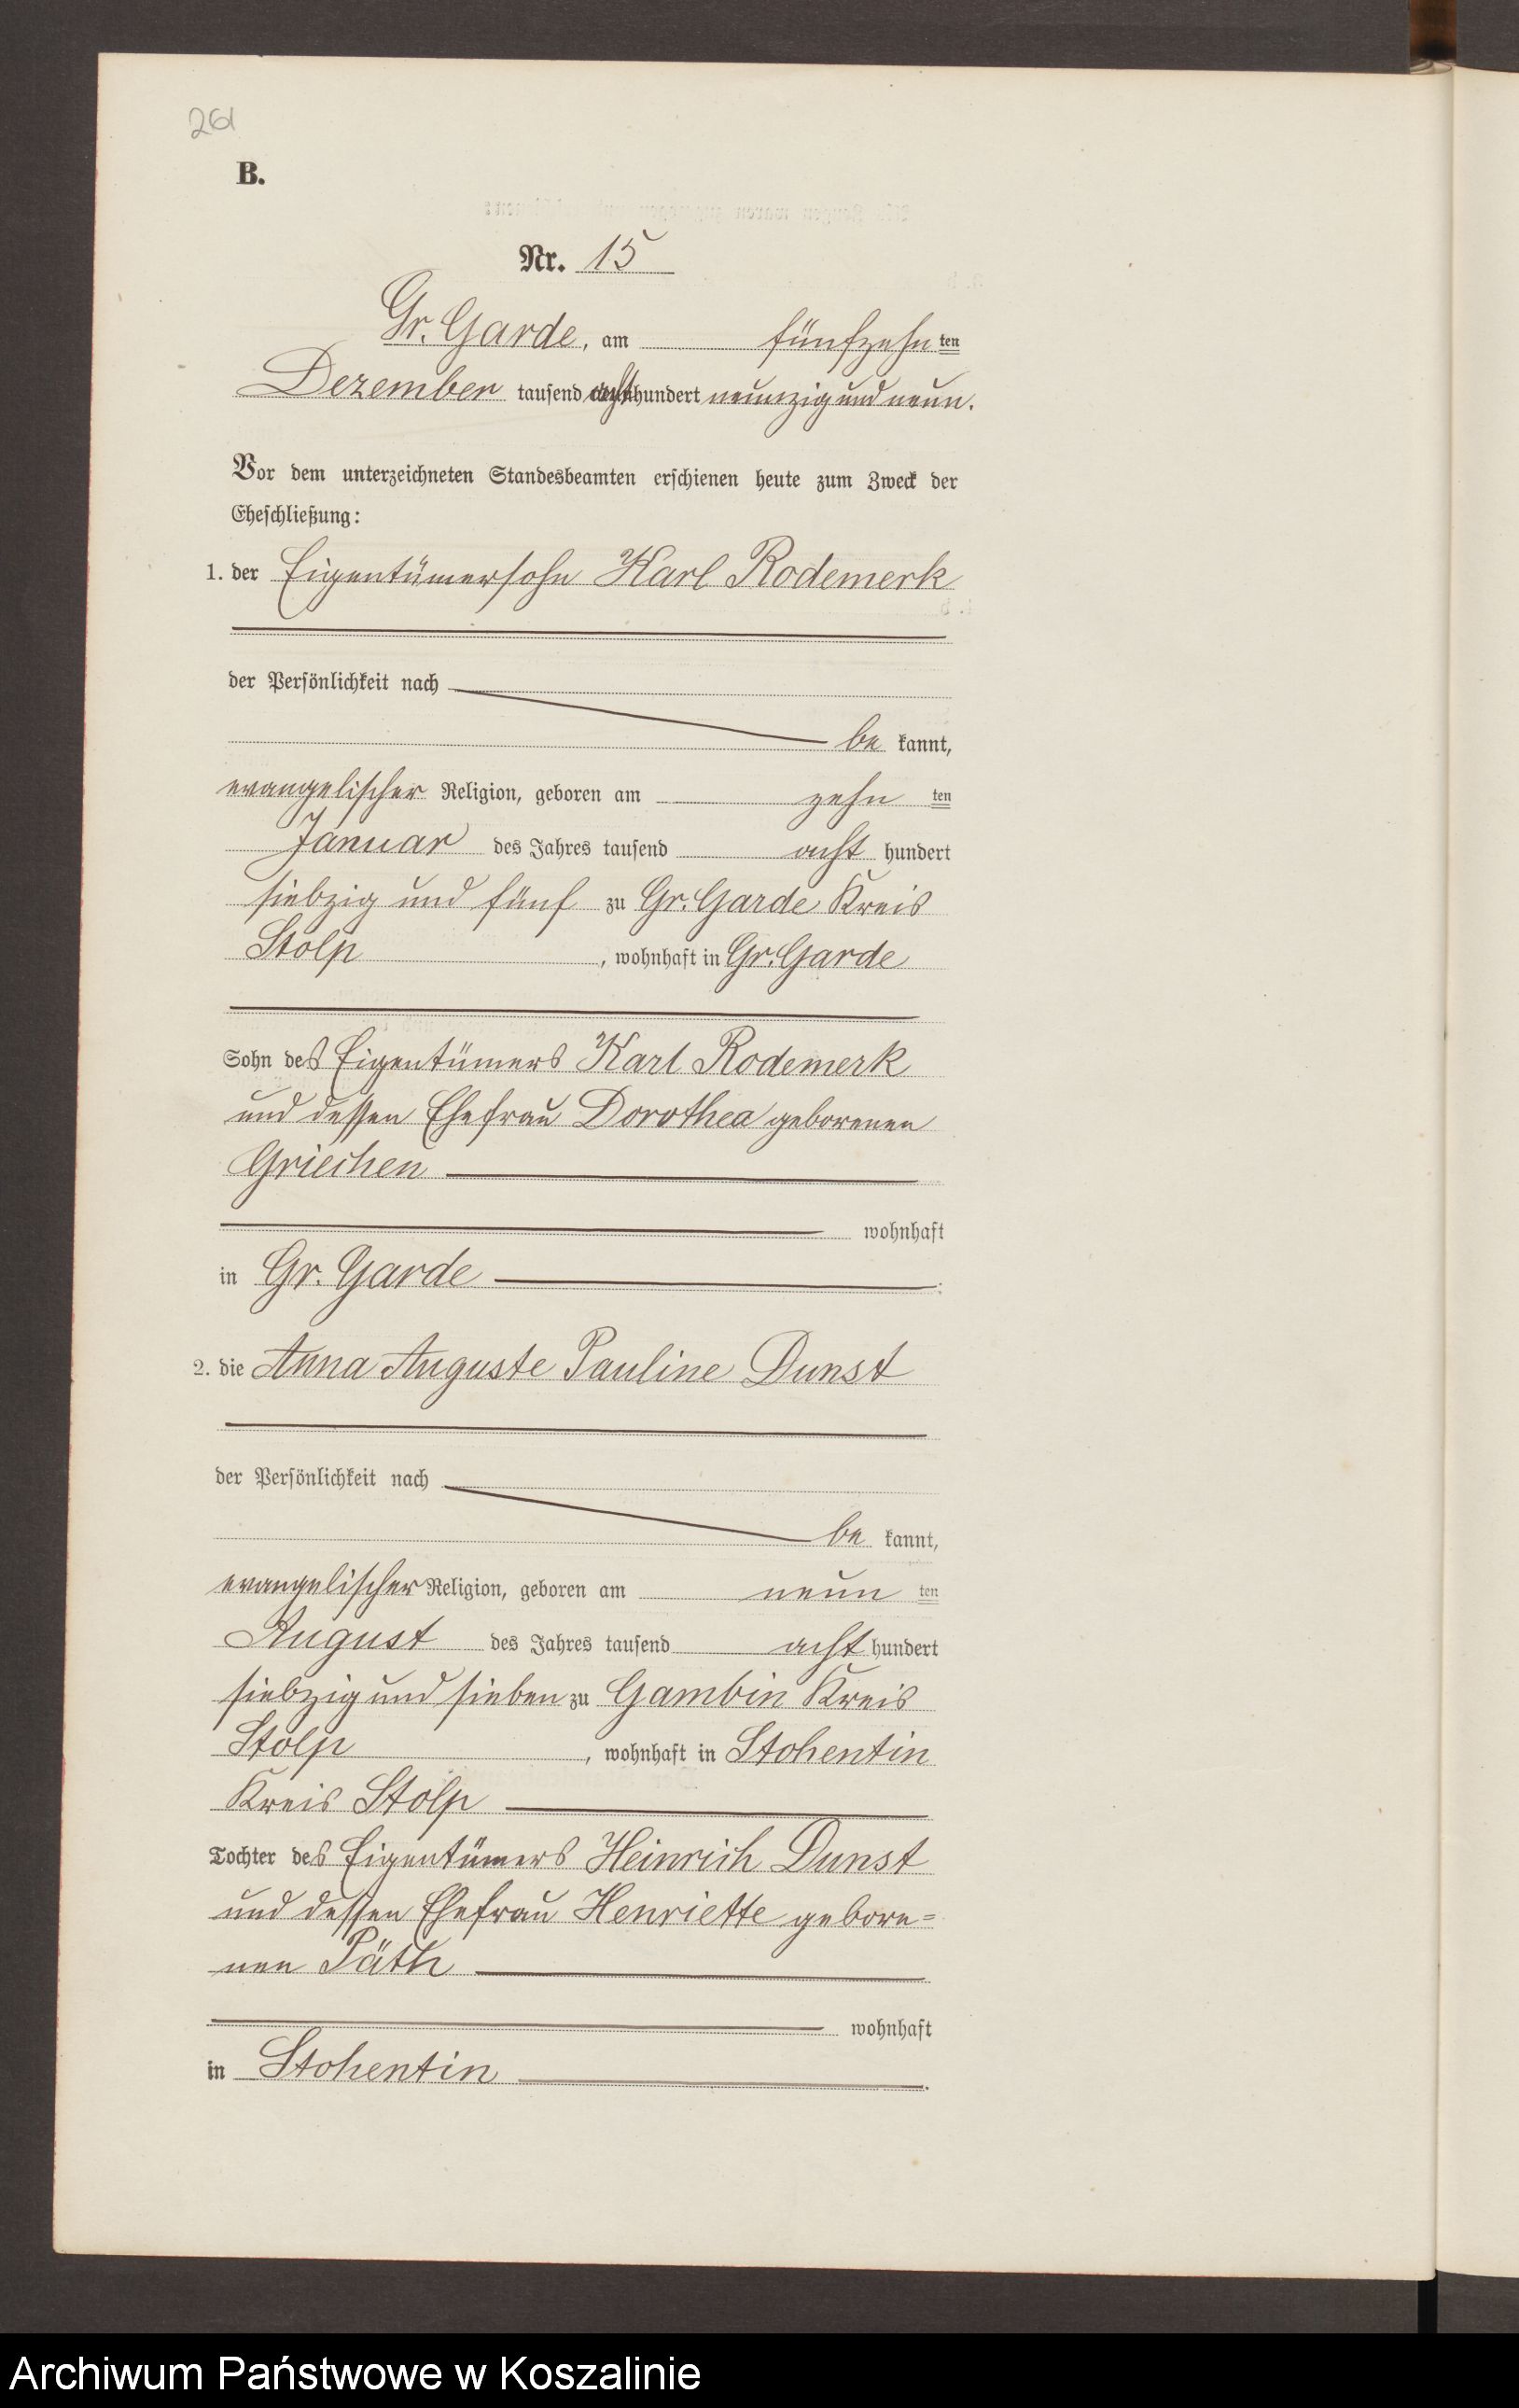 261
B.
Nr. 15
Gr. Garde, am fünfzehn ten
Dezember tausend achthundert neunzig und neun.
Vor dem unterzeichneten Standesbeamten erschienen heute zum Zweck der
Eheschließung:
1. der Eigentümersohn Karl Rodemerk
der Persönlichkeit nach
be kannt,
evangelischer Religion, geboren am zehn ten
Januar des Jahres tausend acht hundert
siebzig und fünf zu Gr. Garde Kreis
Stolp, wohnhaft in Gr. Garde
Sohn des Eigentümers Karl Rodemerk
und dessen Ehefrau Dorothea geborenen
Griechen
wohnhaft
in Gr. Garde
2. die Anna Auguste Pauline Dunst
der Persönlichkeit nach
be kannt,
evangelischer Religion, geboren am neun ten
August des Jahres tausend acht hundert
siebzig und sieben zu Gambin Kreis
Stolp, wohnhaft in Stohentin
Kreis Stolp
Tochter des Eigentümers Heinrich Dunst
und dessen Ehefrau Henriette gebore=
nen Päth
wohnhaft
in Stohentin.
Archiwum Państwowe w Koszalinie